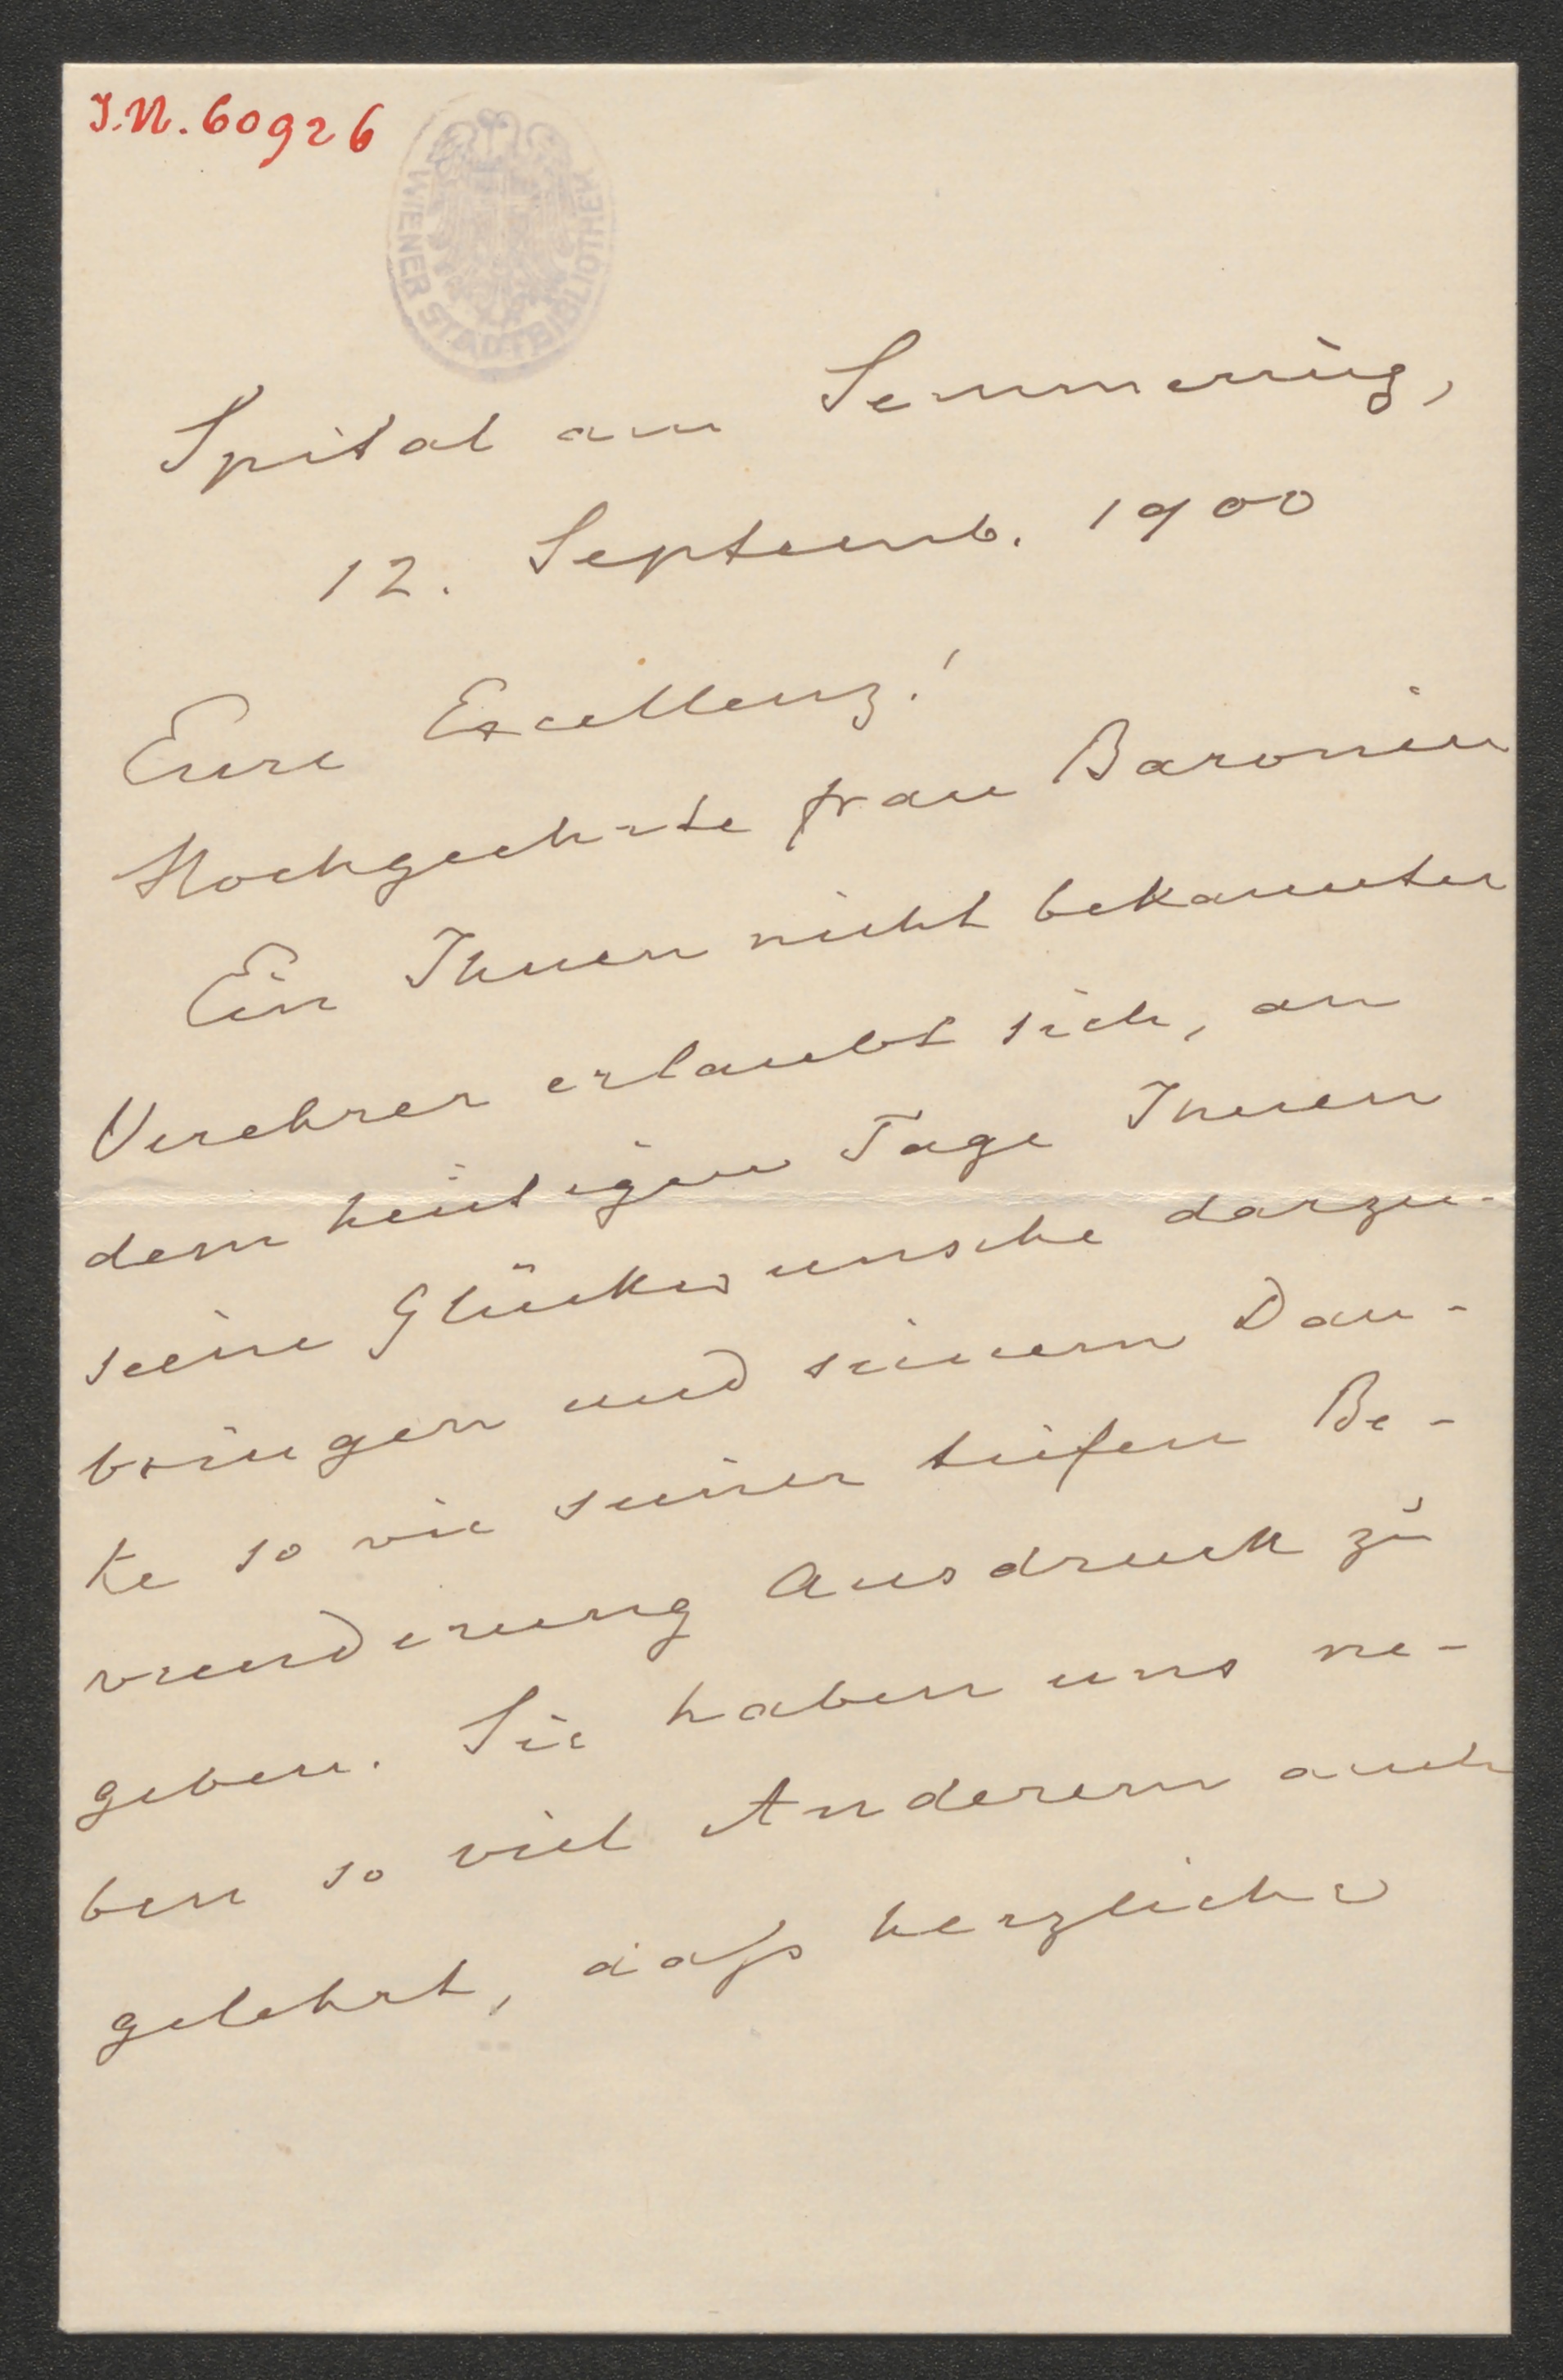 I.N. 60926
WIENER STADTBIBLIOTHEK
Spital am Semmering,
12. Septemb. 1900
Eure Excellenz!
Hochgeehrte Frau Baronin
Ein Ihnen nicht bekannter
Verehrer erlaubt sich, an
dem heutigen Tage Ihnen
seine Glückwunsche darzu-
bringen und seinem Dan-
ke so wie seiner tiefen Be-
wunderung Ausdruck zu
geben. Sie haben uns ne-
ben so viel Anderem auch
gelehrt, daß herzliche